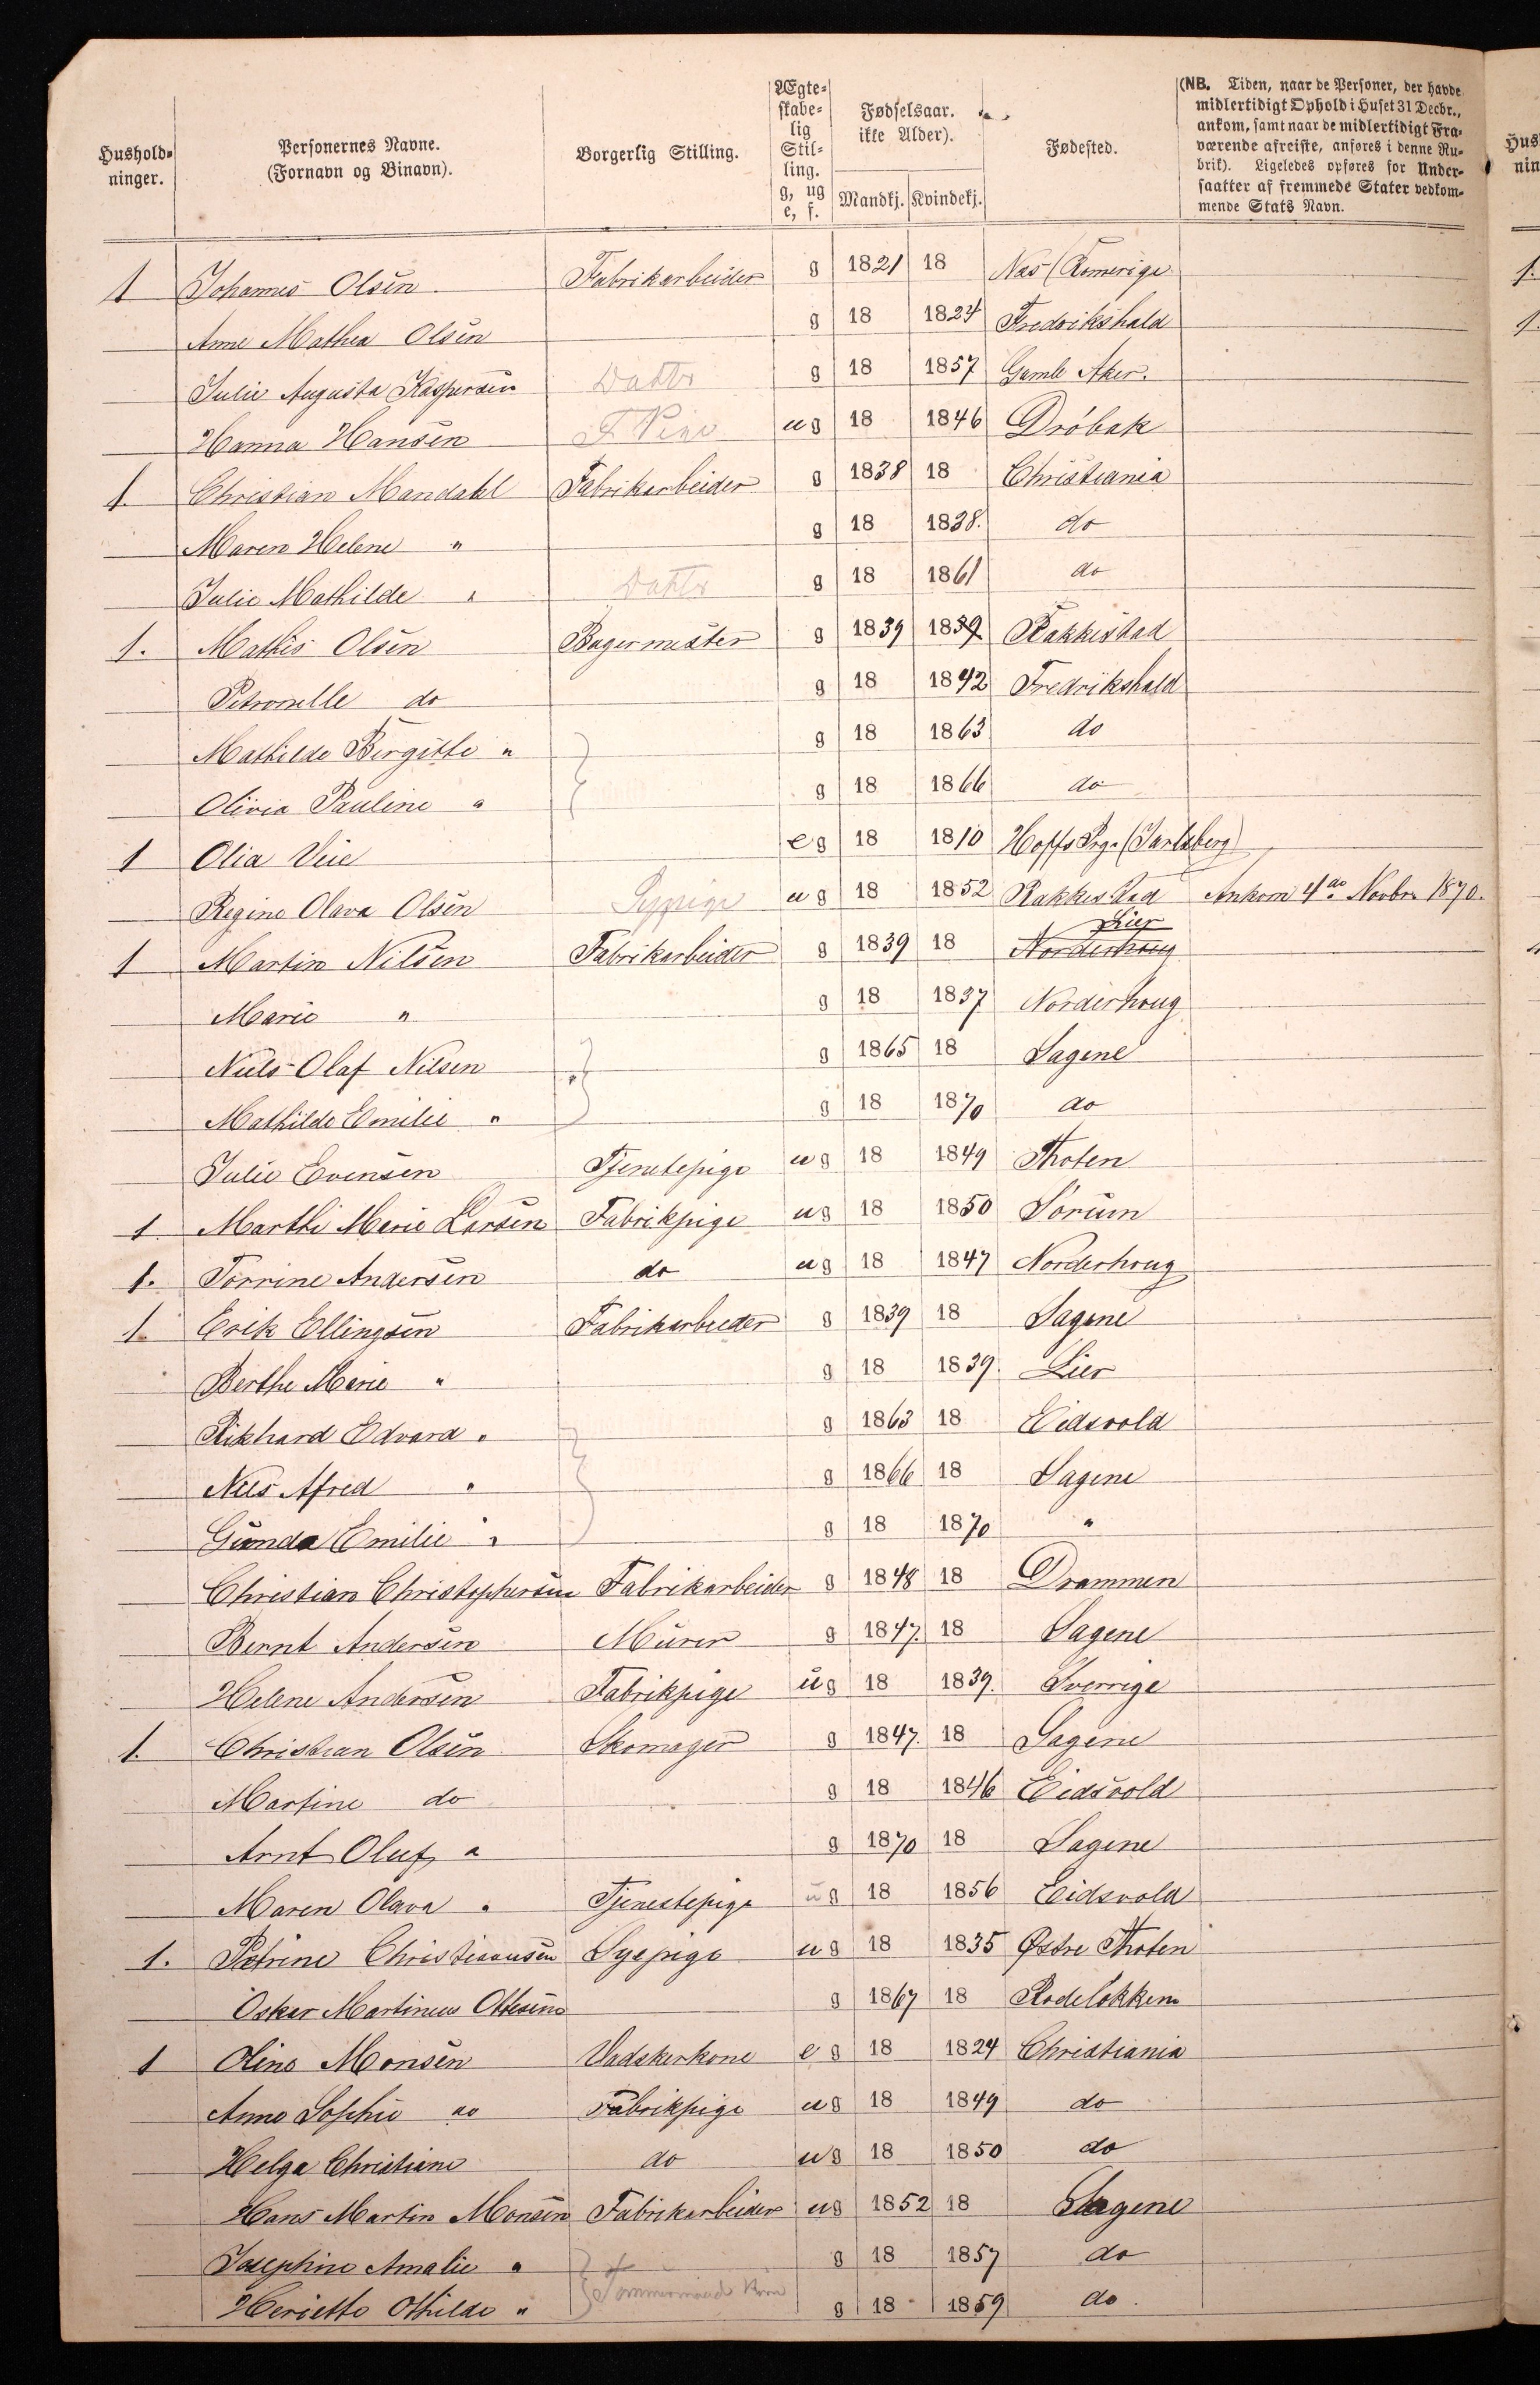 Hushold-ninger. Personernes Navne. (Fornavn og Binavn). Borgerlig Stilling. Ægte-skabe-lig Stil-ling. g, ug e, f. Fødselsaar. ikke Alder). Mandkj. Kvindekj. Fødested. (NB. Tiden, naar de Personer, der havde midlertidigt Ophold i Huset 31 Decbr., ankom, samt naar de midlertidigt Fra-værende afreiste, anføres i denne Ru-brik). Ligeledes opføres for Under-saatter af fremmede Stater vedkom-mende Stats Navn.
1 Johannes Olsen Fabrikarbeider g 1821 18 Næs (Romerige
Anne Mathea Olsen g 18 1824 Fredrikshald
Julie Augusta Kaspersen Datter g 18 1857 Gamle Aker.
Hanna Hansen ug 18 1846 Dröbak
1. Christian Mandahl Fabrikarbeider g 1838 18 Christiania
Maren Helene " g 18 1838. do
Julie Mathilde " Datter g 18 1861 do
1. Mathis Olsen Bagermester g 1839 1839 Rakkestad
Petronelle do g 18 1842 Fredrikshald
Mathilde Birgitte " g 18 1863 do
Olivia Pauline " g 18 1866 do
1 Olia Viie eg 18 1810 Hoffs Prg. (Jarlsberg)
Regine Olava Olsen Sypige ug 18 1852 Rakkestad Ankom 4de Novbr 1870.
1 Martin Nilsen Fabrikarbeider g 1839 18 Norderhoug Lier
Marie " g 18 1837 Norderhoug
Niels Olaf Nilsen g 1865 18 Sagene
Mathilde Emilie " g 18 1870 do
Julie Evensen Tjenetepige ug 18 1849 Thoten
1 Marthe Marie Larsen Fabrikpige ug 18 1850 Sörum
1. Torrine Andersen do ug 18 1847 Norderhoug
1. Erik Ellingsen Fabrikarbeider g 1839 18 Sagene
Berthe Marie " g 18 1839. Lier
Rikhard Edvard " g 1863 18 Eidsvold
Nils Afred " g 1866 18 Sagene
Gunda Emilie " g 18 1870 "
Christian Christophersen Fabrikarbeider g 1848 18 Drammen
Bernt Andersen Murer g 1847. 18 Sagene
Helene Andersen Fabrikpige ug 18 1839. Sverrige
1. Christian Olsen Skomager g 1847. 18 Sagene
Martine do g 18 1846 Eidsvold
Arnt Oluf " g 1870 18 Sagene
Maren Olava " Tjenestepige ug 18 1856 Eidsvold
1. Petrine Christiansen Syepige ug 18 1835 Østre Thoten
Oskar Martinius Ottesen g 1867 18 Rodelökken
1 Oline Monsen Vadskerkone eg 18 1824 Christiania
Anne Sophie do Fabrikpige ug 18 1849 do
Helga Christiane do ug 18 1850 do
Hans Martin Monsen Fabrikarbeider ug 1852 18 Sagene
Josephine Amalie " g 18 1857 do
Heriette Othilde " Tømmermand g 18 1859 do.